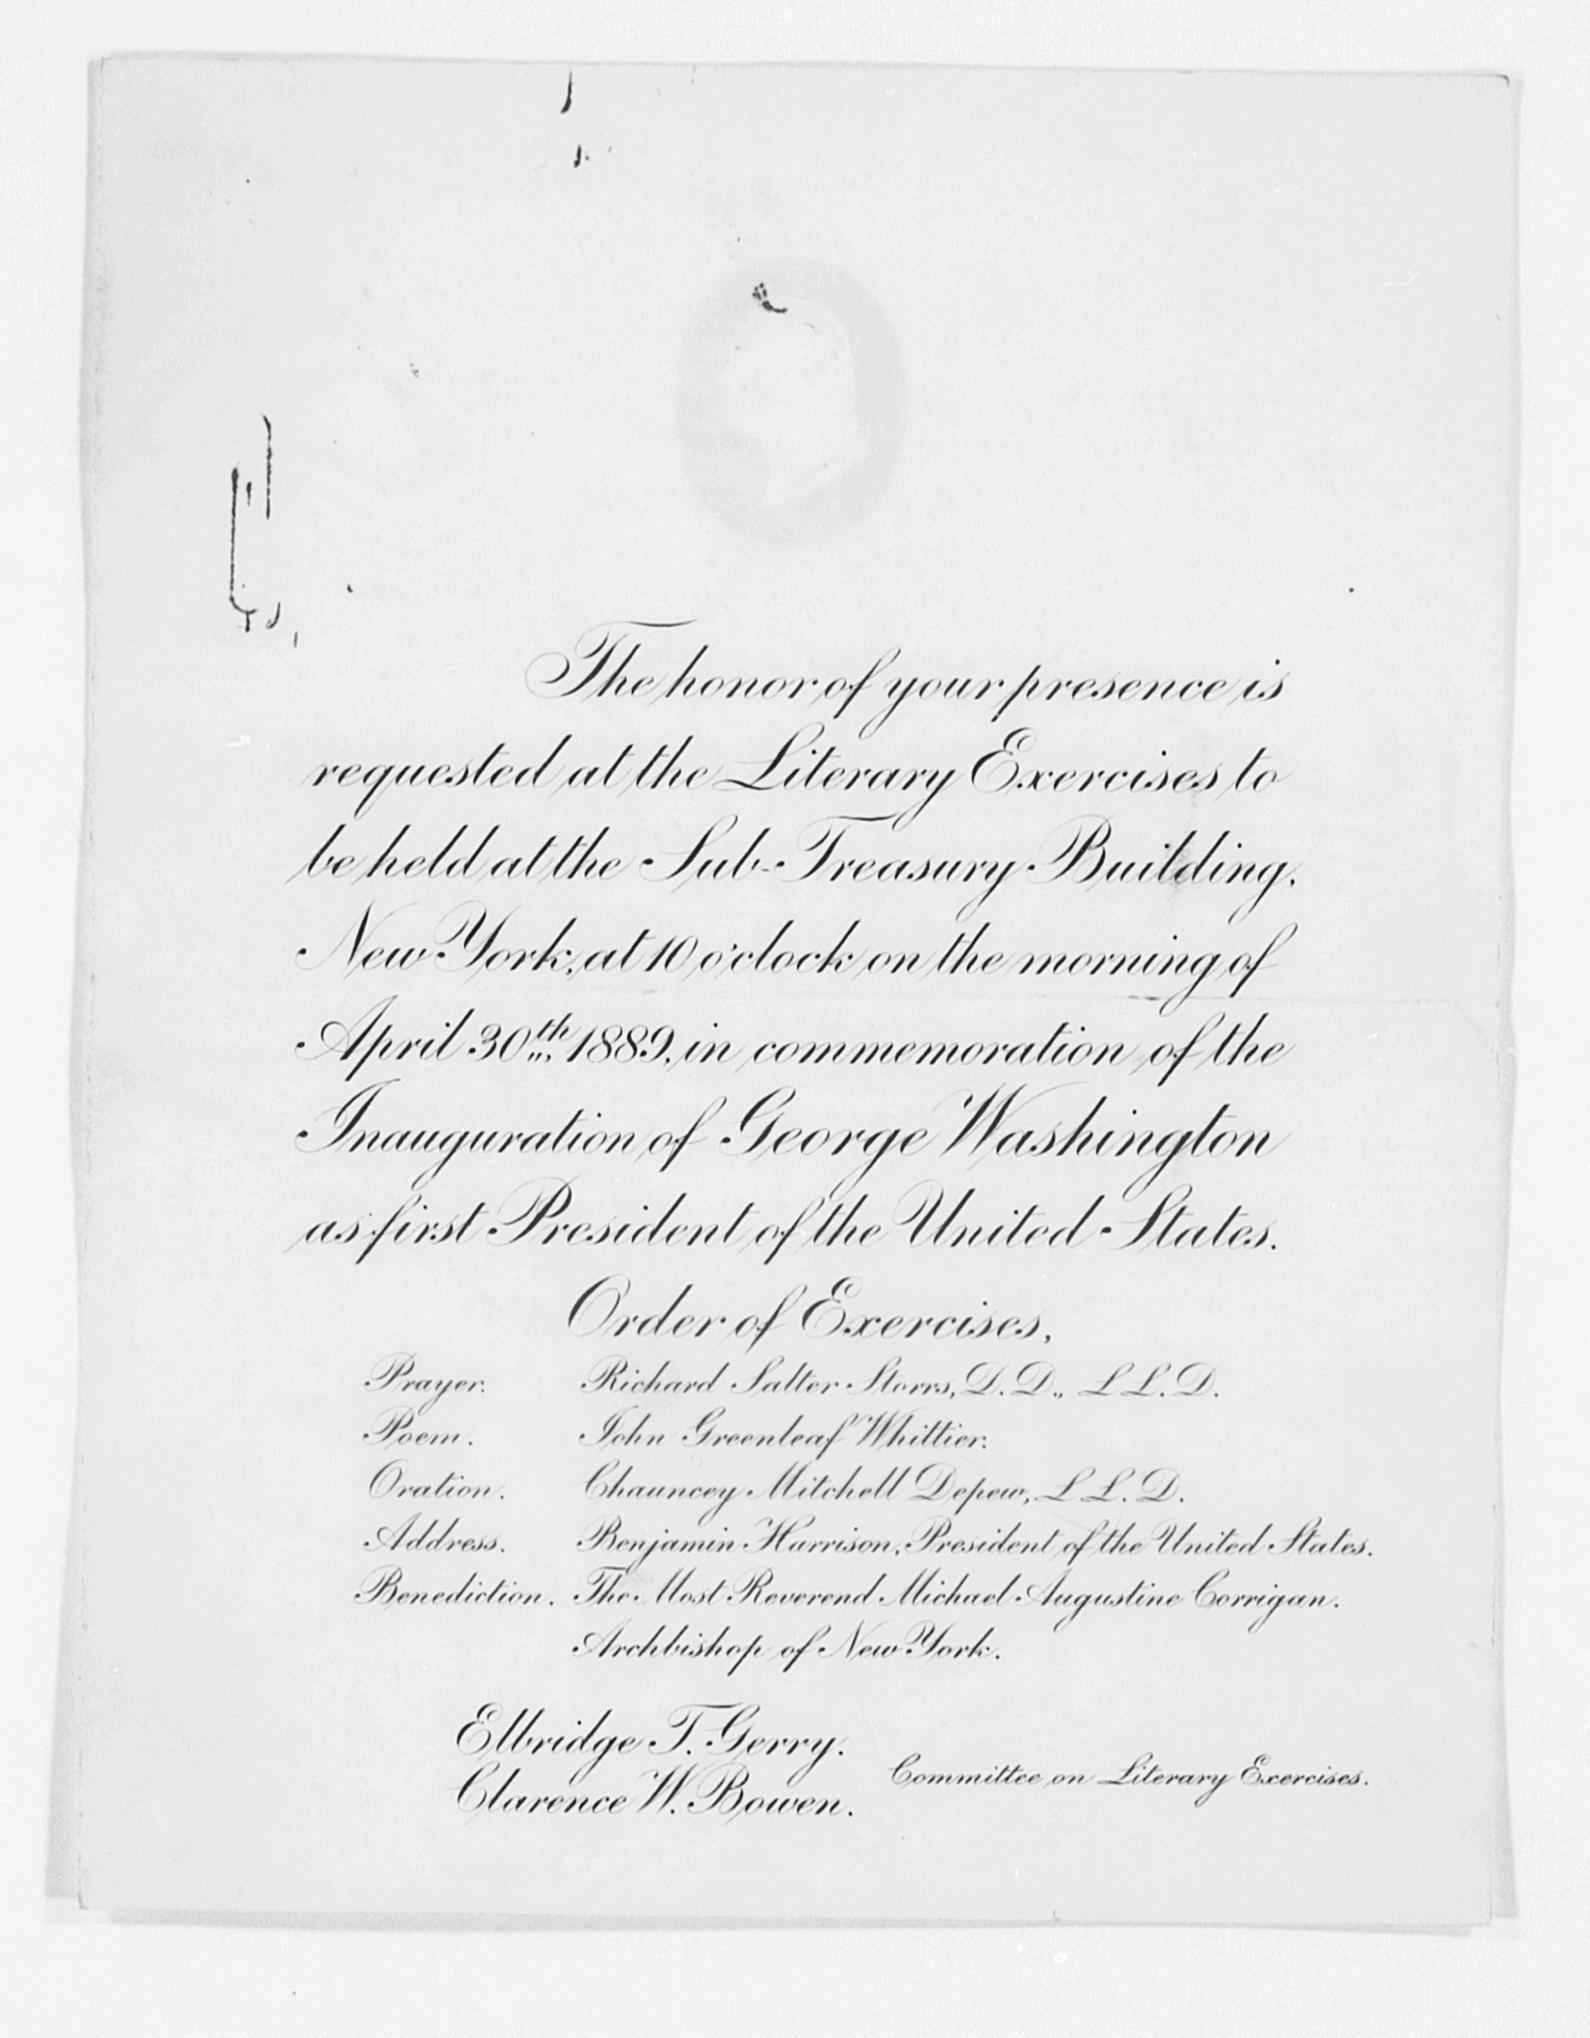 The honor of your presence is
requested at the Literary Exercises to
be held at the Sub-Treasury Building,
New York, at 10 o'clock on the morning of
April 30th 1889, in commemoration of the
Inauguration of George Washington
as first President of the United States.
Order of Exercises,
Prayer. Richard Salter Storrs, D.D., LL.D.
Poem. John Greenleaf Whittier.
Oration. Chauncey Mitchell Depew, LL.D.
Address. Benjamin Harrison, President of the United States.
Benediction. The Most Reverend Michael Augustine Corrigan.
Archbishop of New York.
Elbridge T. Gerry.
Clarence W. Bowen.
Committee on Literary Exercises.